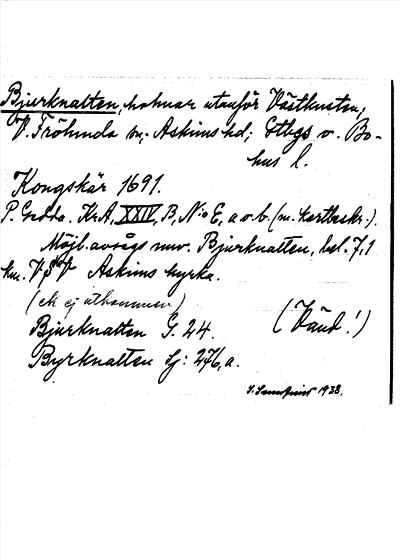 Bjurknatten, holmar utanför Västkusten,
V. Frölunda sn; Askims hd; Gtbgs o. Bo-
hus l.
Kongskär 1691.
P. Gedda. Kr.A. XXIV, B, N:o E, a o. b. (m. kartbeskr.).
Möjl. avsågs nuv. Bjurknatten, bel. 7,1
km. V Askims kyrka.
(ek ej utkommen)
Bjurknatten G. 24. (Vänd!)
Byrknatten Sj: 276, a.
1938.